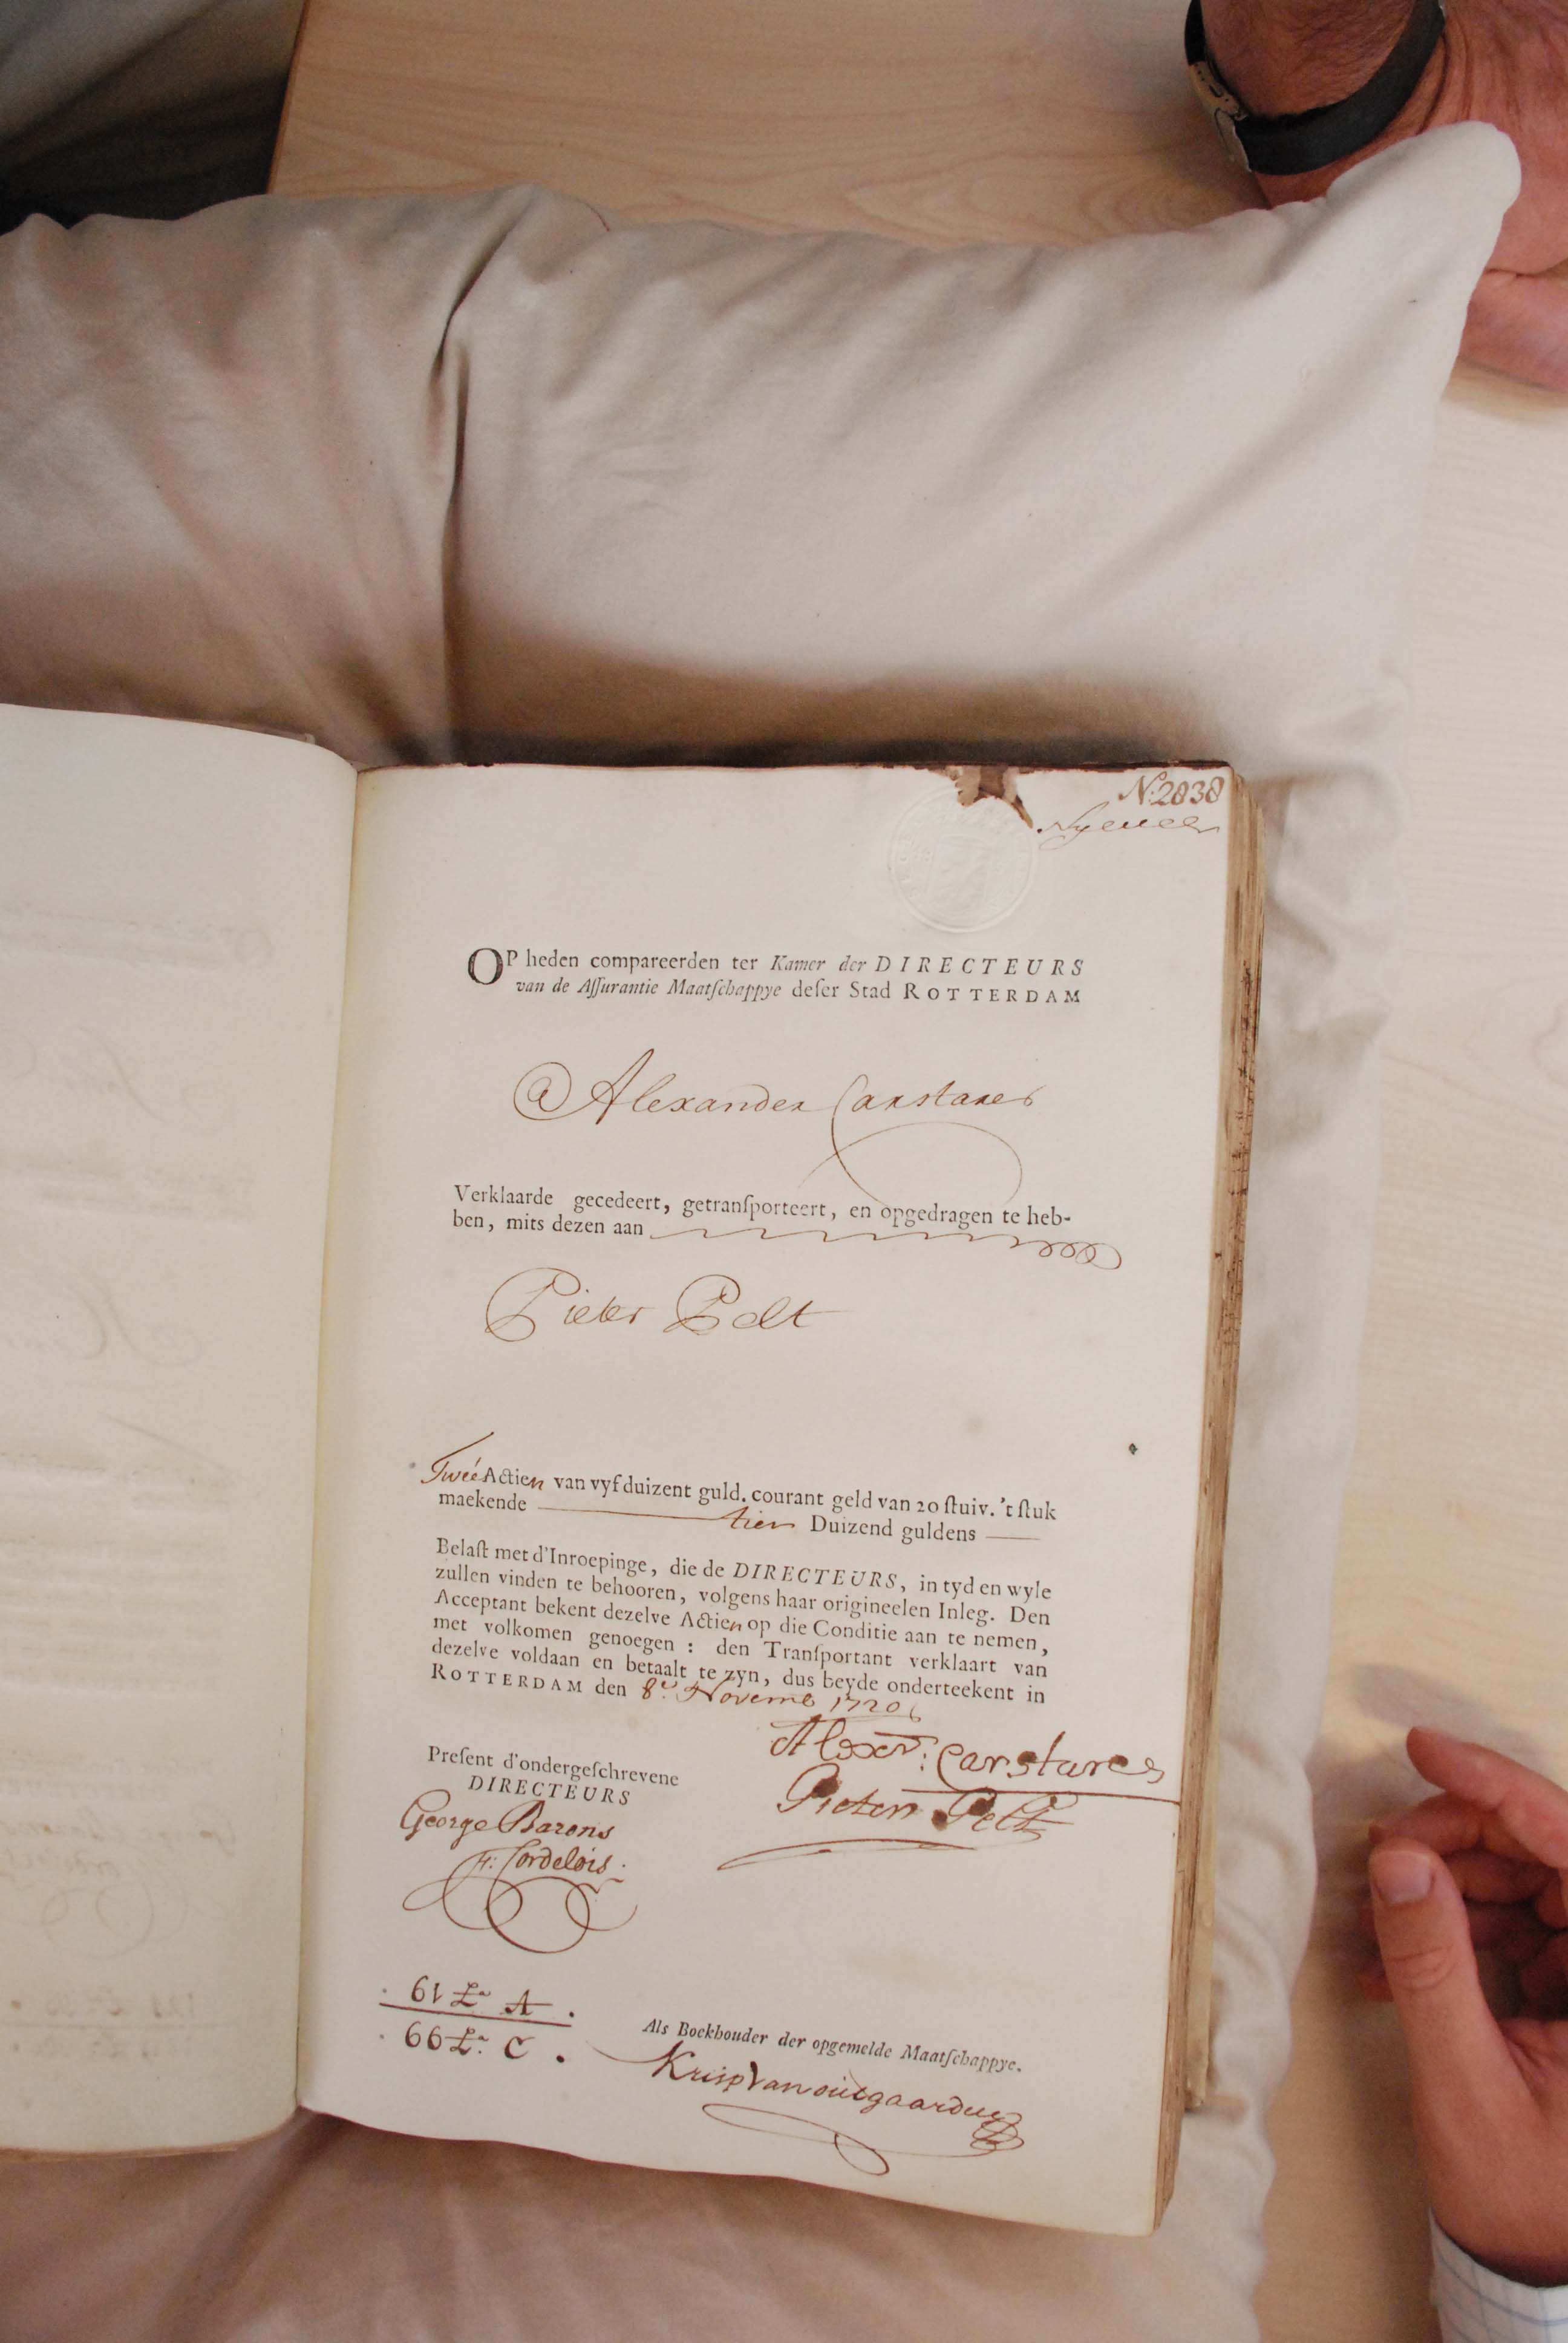 N:2030
OP heden compareerden ter Kamer der DIRECTEURS
van de Aſſurantie Maatſchappye deſer Stad ROTTERDAM
Alexander Carstares
Verklaarde gecedeert, getranſporteert, en opgedragen te heb-
ben, mits dezen aan
Pieter Pelt
Tweé Actien van vyf duizent guld. courant geld van 20 ſtuiv. 't ſtuk
maekende tien Duizend guldens
Belaſt met d'Inroepinge, die de DIRECTEURS, in tyd en wyle
zullen vinden te behooren, volgens haar origineelen Inleg. Den
Acceptant bekent dezelve Actien op die Conditie aan te nemen,
met volkomen genoegen : den Tranſportant verklaart van
dezelve voldaan en betaalt te zyn, dus beyde onderteekent in
ROTTERDAM den 8e. Novemb 1720
Alexr: Carstares
Pieter Pelt
Preſent d'ondergeſchrevene
DIRECTEURS
George Barons
H: Cordelois.
61 La A.
66 La. C.
Als Boekhouder der opgemelde Maatſchappye.
Krisp Van outgaarden